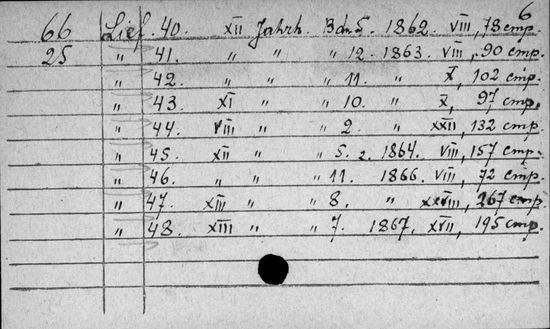 6
66 Lief. 40. XII Jahrh. Bd. 5. 1862. VIII, 78 стр.
25 " 41. " " " 12. 1863. VIII, 90 стр.
" 42. " " " 11. " X, 102 стр.
" 43. XI " " 10. " X, 97 стр.
" 44. VIII " " 2. " XXII, 132 стр.
" 45. XII " " 5. 2. 1864. VIII, 157 стр.
" 46. " " " 11. 1866. VIII, 72 стр.
" 47. XIII " " 8. " 267 стр.
" 48. XIII " " 7. 1867. XVII, 195 стр.